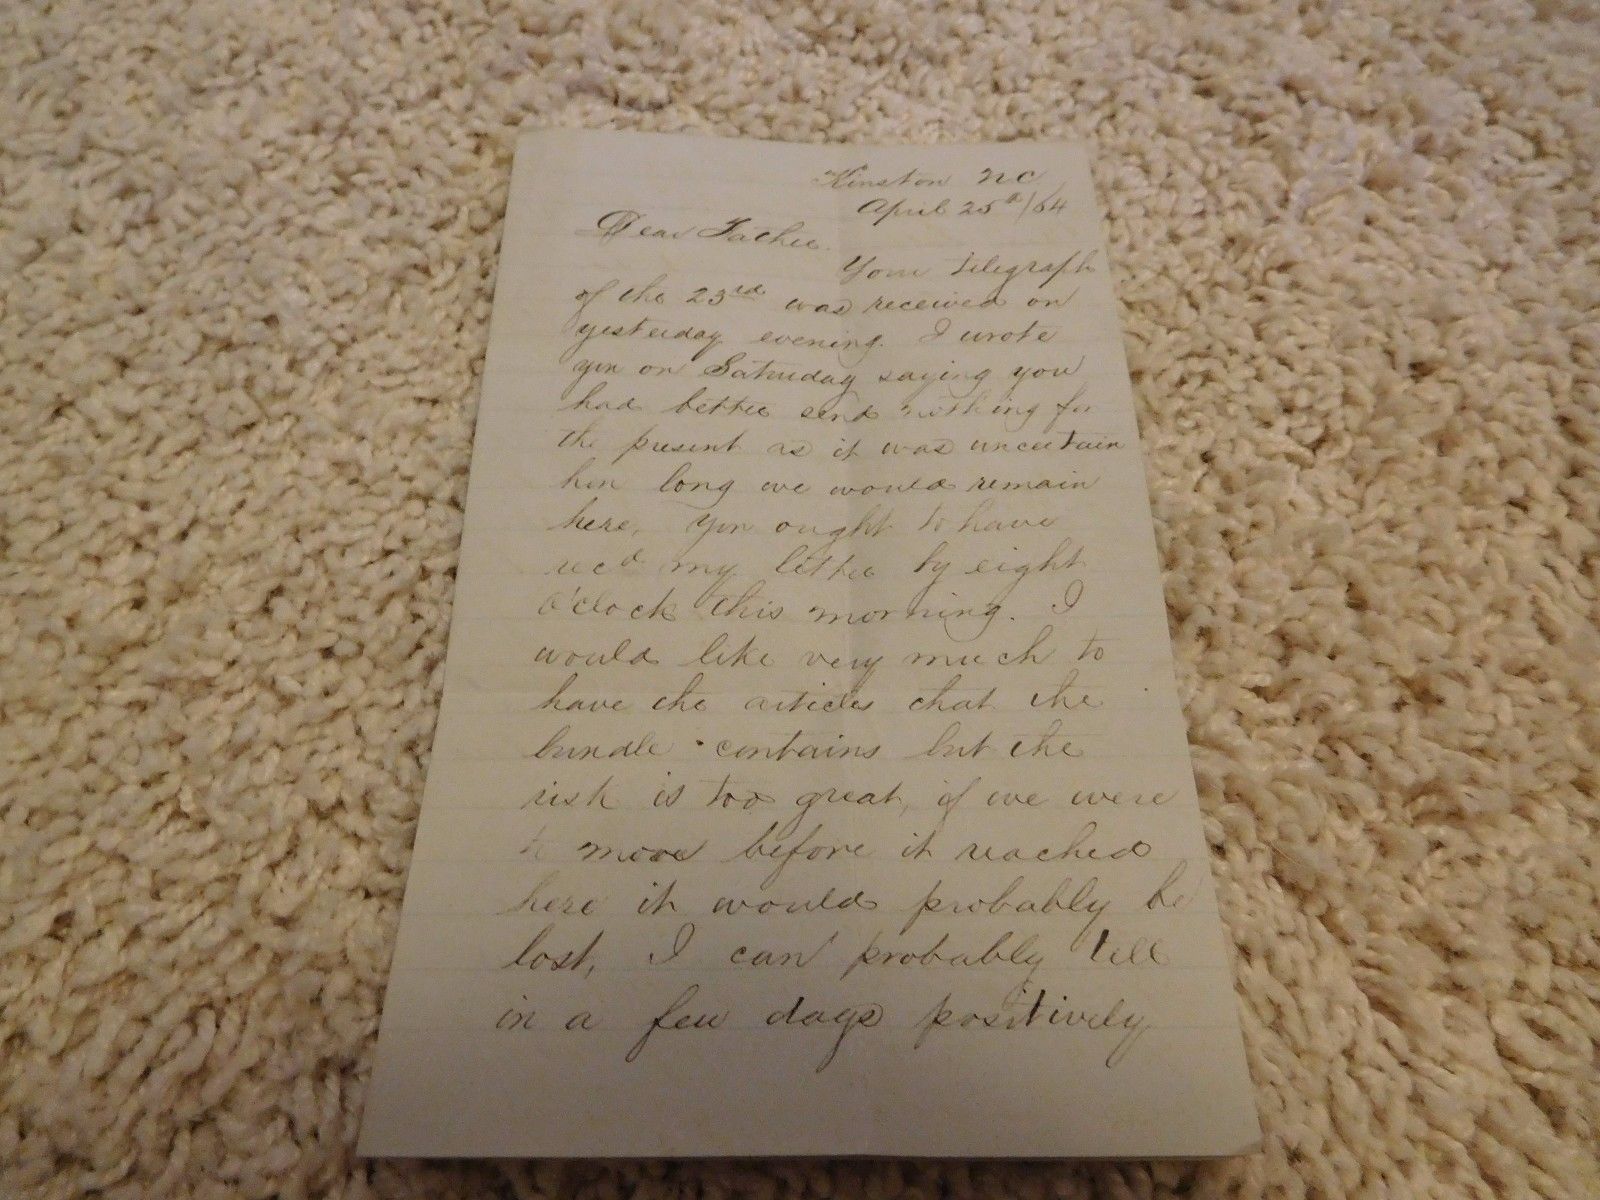 Kinston NC
April 25th /64
Dear Father.
Your telegraph
of the 23rd was received on
yesterday evening. I wrote
you on Saturday saying you
had better send nothing for
the present as it was uncertain
how long we would remain
here, You ought to have
recd my letter by eight
o'clock this morning. I
would like very much to
have the articles that the
bundle contains but the
risk is too great, if we were
to move before it reached
here it would probably be
lost, I can probably tell
in a few days positively